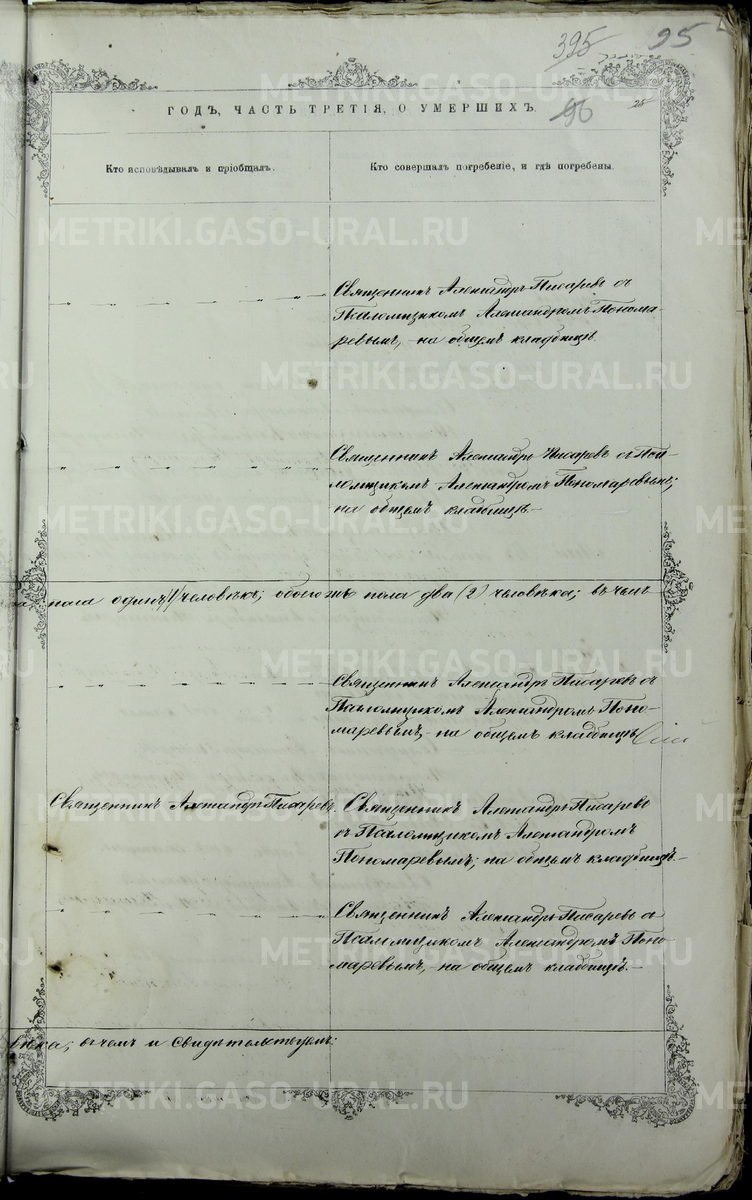 395 95
96 25
ГОДЪ, ЧАСТЬ ТРЕТІЯ, О УМЕРШИХЪ.
Кто исповѣдывалъ и пріобщалъ.
Кто совершалъ погребеніе, и гдѣ погребены.
METRIKI.GASO-URAL.RU
Священникъ Александръ Писаревъ съ
Псаломщикомъ Александромъ Понома-
ревымъ, на общемъ кладбищѣ.
Священникъ Александръ Писаревъ съ Пса-
ломщикомъ Александромъ Пономаревымъ;
на общемъ кладбищѣ.-
пола одинъ /1/ человѣкъ; обоего же пола два (2) человѣка; въ чемъ
Священникъ Александръ Писаревъ съ
Псаломщикомъ Александромъ Поно-
маревымъ, на общемъ кладбищѣ
Священникъ Александръ Писаревъ.
Священникъ Александръ Писаревъ
съ Псаломщикомъ Александромъ
Пономаревымъ; на общемъ кладбищѣ.-
Священникъ Александръ Писаревъ съ
Псаломщикомъ Александромъ Поно-
маревымъ, на общемъ кладбищѣ.-
вѣка, въ чемъ и свидѣтельствуемъ: